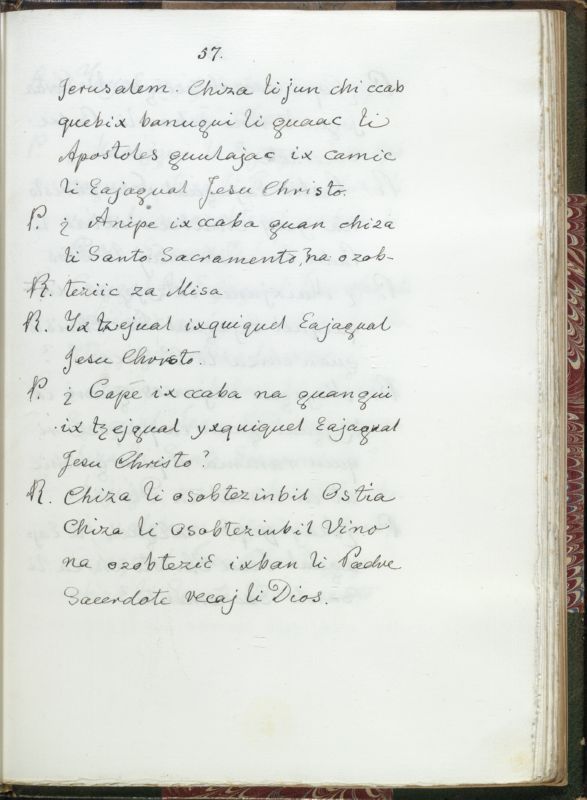 57.
Jerusalem. Chiza li jun chi ccab
quebix banuqui li quaac li
Apostoles quulajac ix camic
li Eajagual Jesu Christo.
P. ¿ Anipe ix ccaba quan chiza
li Santo Sacramento, na ozob-
R. teziic za Misa
R. Ix tzejual ixquiquel Eajagual
Jesu Christo.
P. ¿ Cape ix ccaba na quanqui
ix tzejqual yxquiquel Eajagual
Jesu Christo?
R. Chiza li osobtezinbil Ostia
Chiza li osobtezinbil Vino
na ozobtezic ixban li Padre
Sacerdote vecaj li Dios.